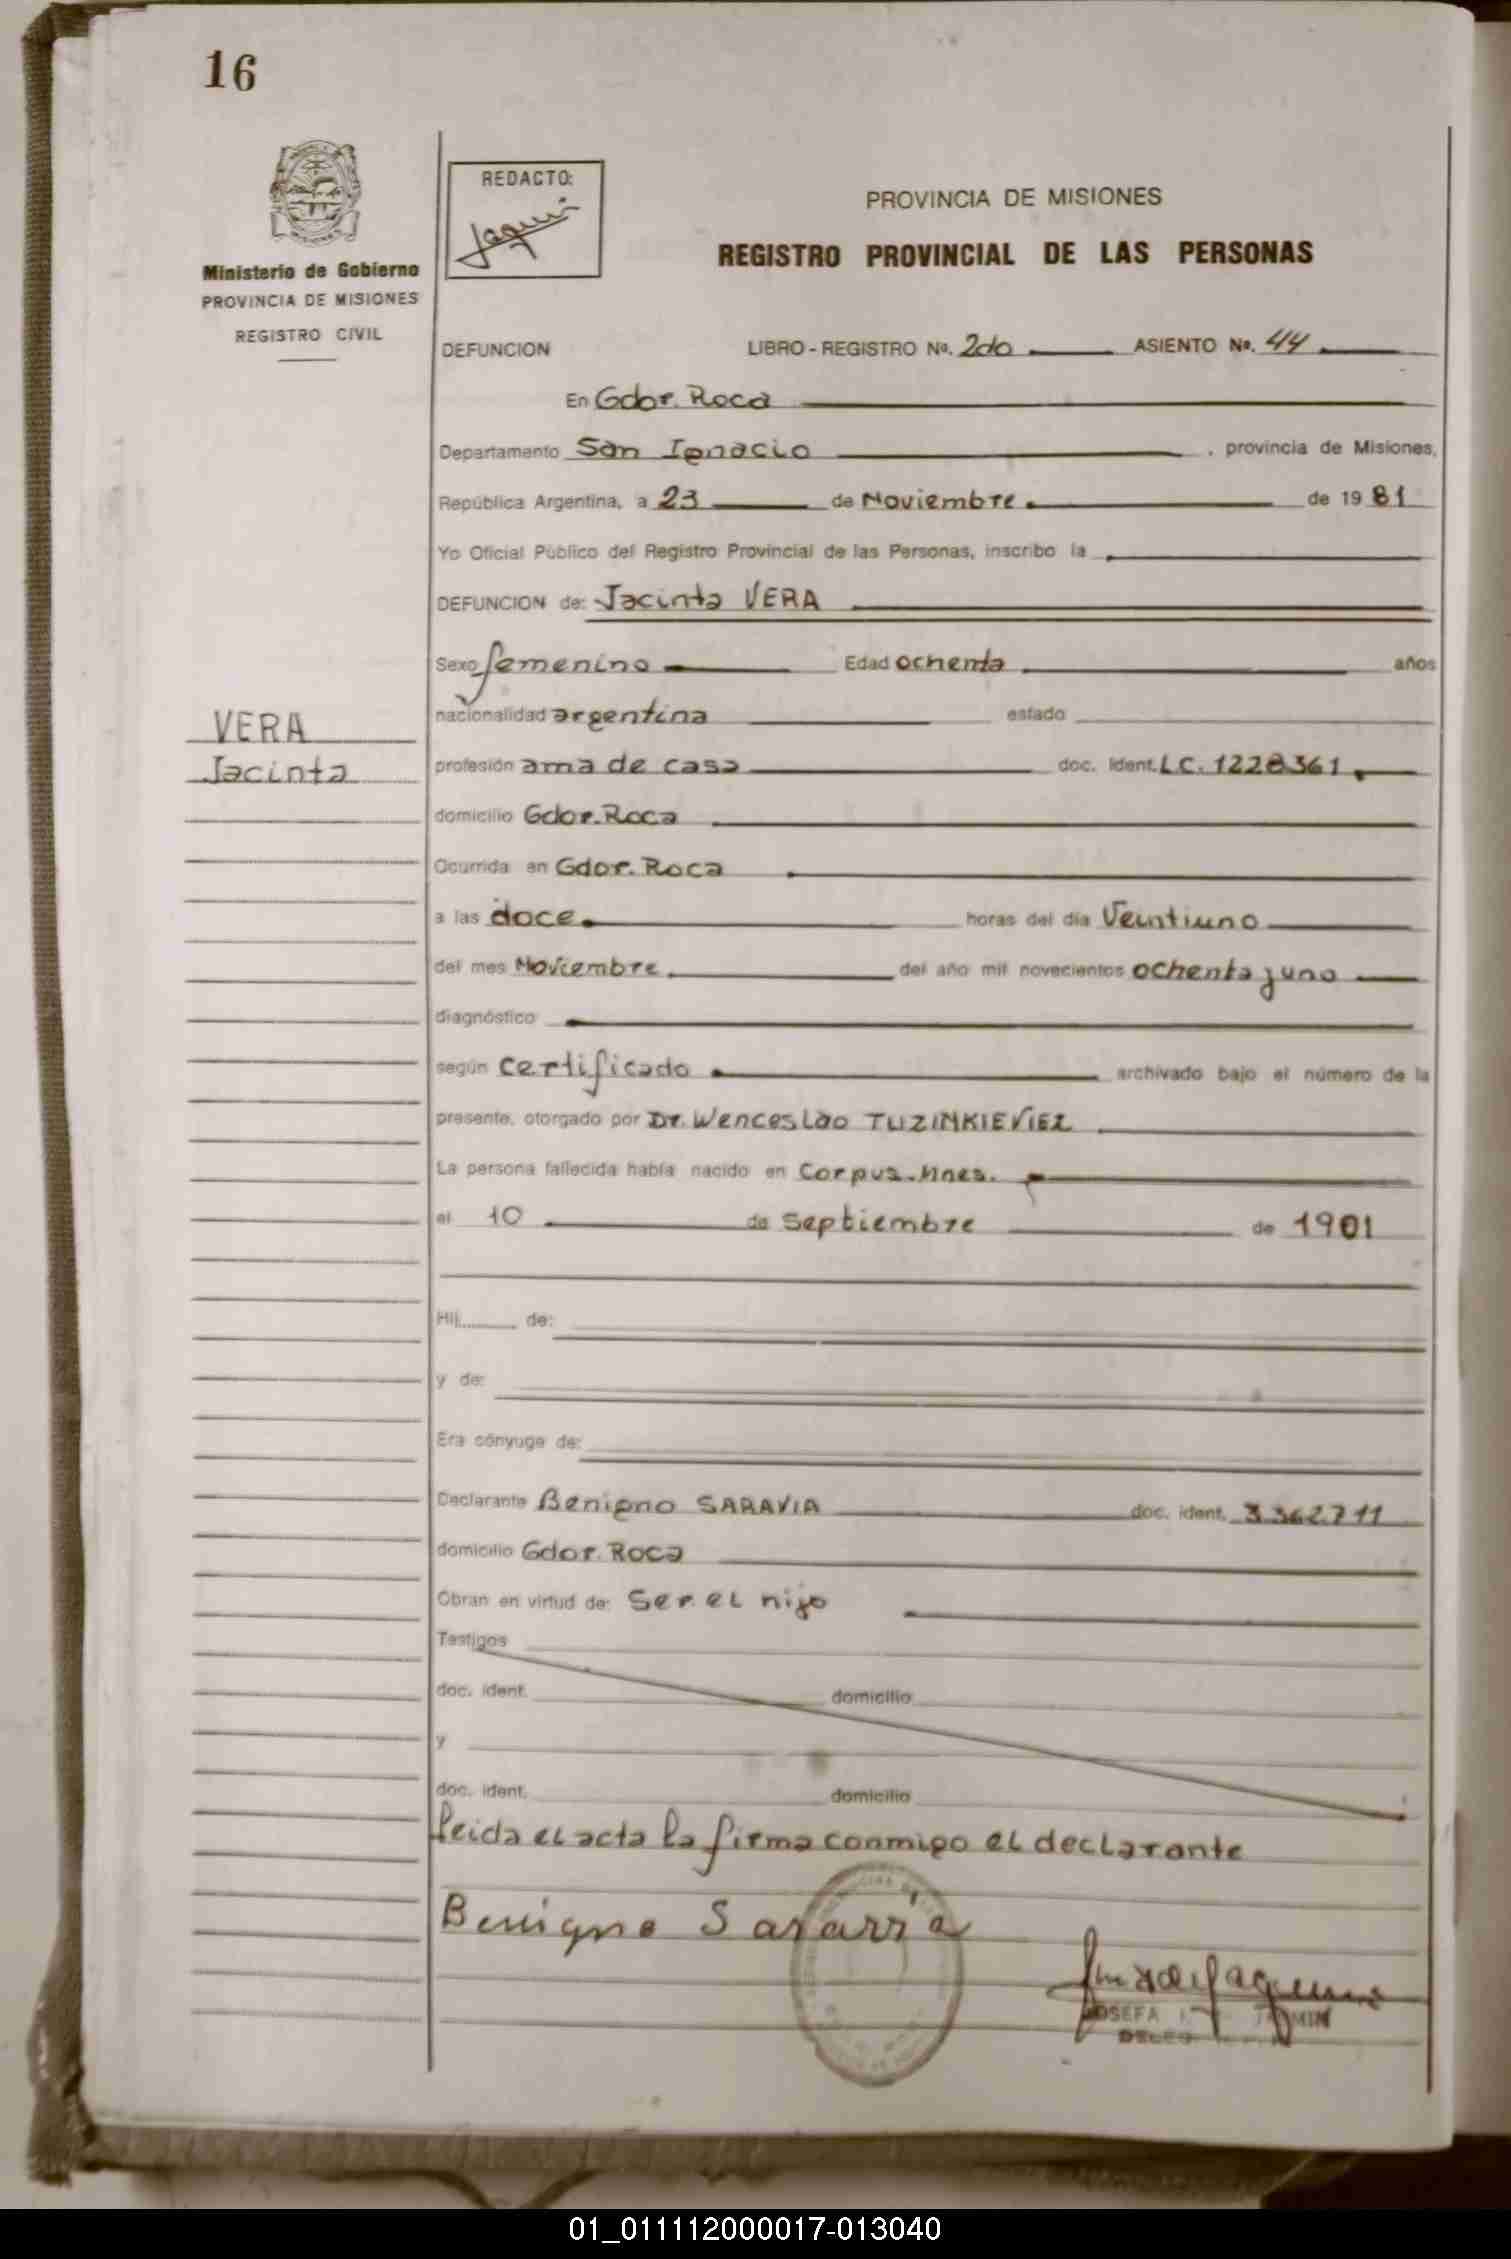 16
REDACTO:
Ministerio de Gobierno
PROVINCIA DE MISIONES
REGISTRO CIVIL
PROVINCIA DE MISIONES
REGISTRO PROVINCIAL DE LAS PERSONAS
DEFUNCION LIBRO - REGISTRO Nº. 2do ASIENTO Nº. 44
En Gdor. Roca
Departamento San Ignacio, provincia de Misiones,
República Argentina, a 23 de Noviembre de 19 81
Yo Oficial Público del Registro Provincial de las Personas, inscribo la
DEFUNCION de: Jacinta VERA
Sexo femenino Edad ochenta años
VERA
Jacinta
nacionalidad argentina estado
profesión ama de casa doc. ident. LC. 1228361
domicilio Gdor. Roca
Ocurrida en Gdor. Roca
a las doce horas del día Veintiuno
del mes Noviembre del año mil novecientos ochenta y uno
diagnóstico
según certificado archivado bajo el número de la
presente, otorgado por Dr. Wenceslao TUZINKIEVIEZ
La persona fallecida había nacido en Corpus-Mnes.
el 10 de septiembre de 1901
Hij de:
y de:
Era cónyuge de:
Declarante Benigno SARAVIA doc. ident. 3362711
domicilio Gdor. Roca
Obran en virtud de: Ser el hijo
Testigos
doc. ident. domicilio
y
doc. ident. domicilio
leida el acta la firma conmigo el declarante
Benigno Saravia
JOSEFA
01_011112000017-013040